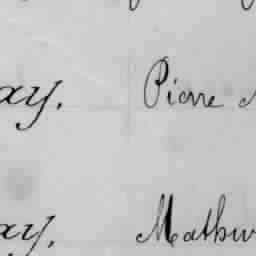 ay. Pierre
ay. Mathur